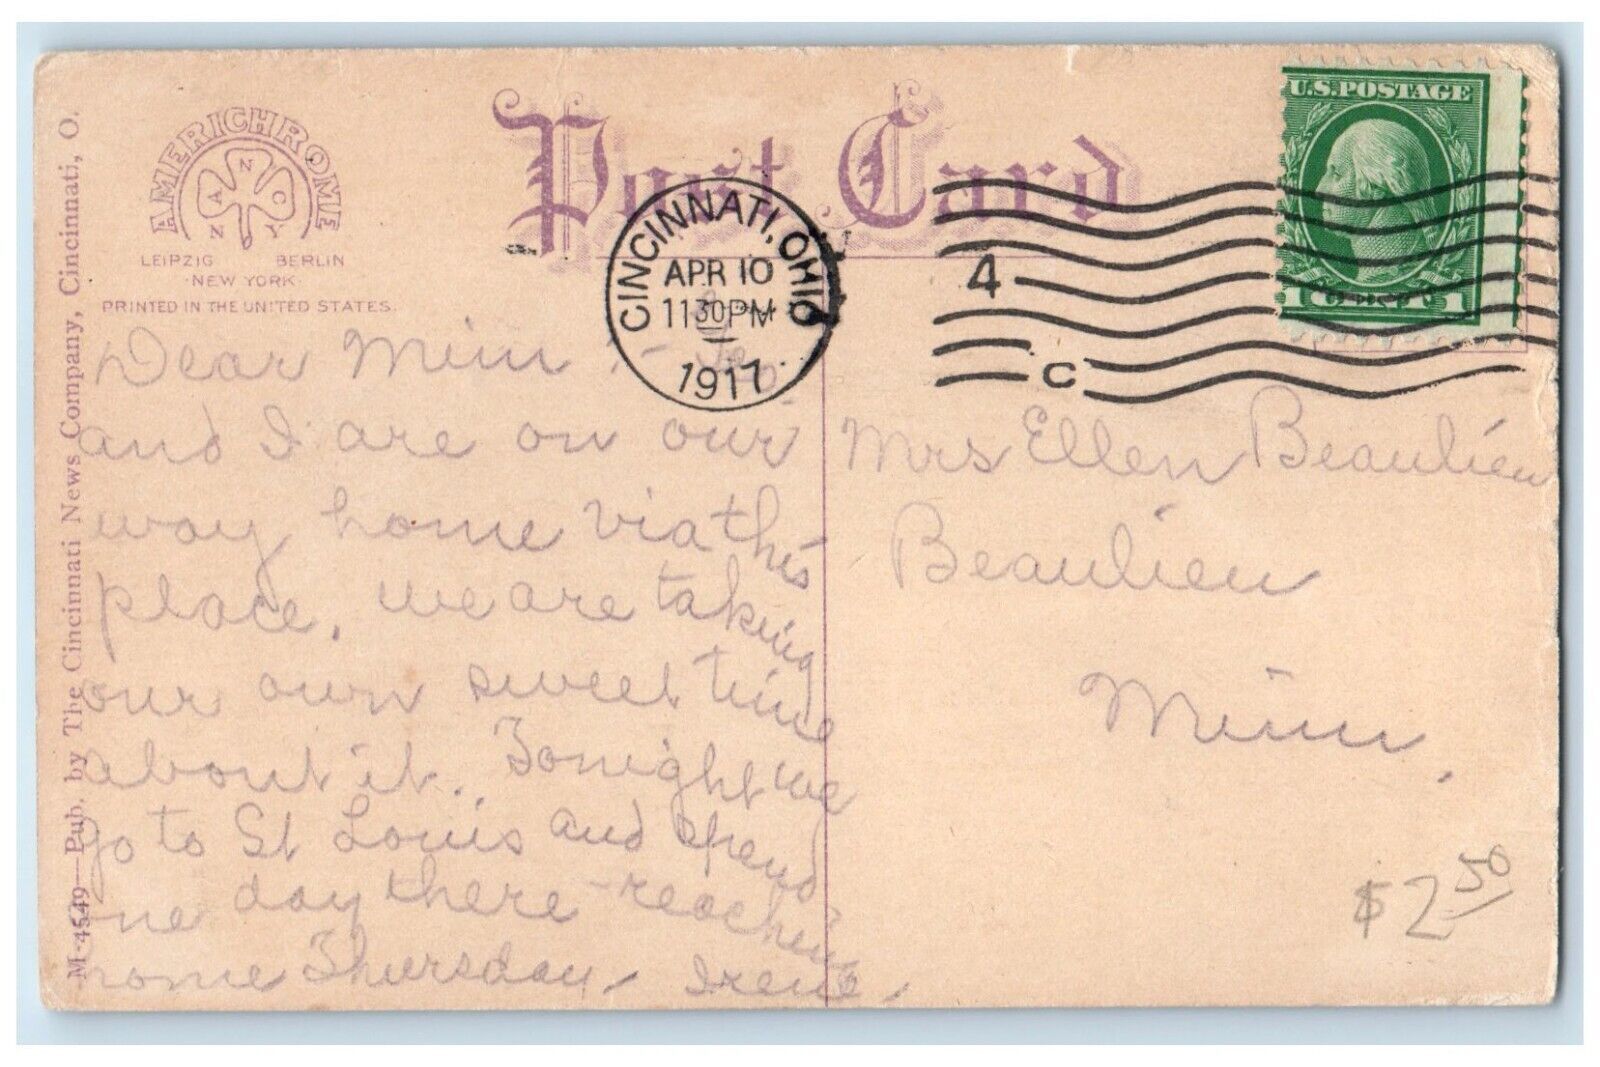 M-4549—Pub. by The Cincinnati News Company, Cincinnati, O.
AMERICHROME
ANNCY
LEIPZIG BERLIN
·NEW YORK·
PRINTED IN THE UNITED STATES.
Post Card
CINCINNATI, OHIO
APR 10
11 30 PM
1917
4
C
U.S. POSTAGE
1 1
Dear Mim :-
and I are on our
way home via this
place. We are taking
our own sweet time
about it.. Tonight we
go to St Louis and spend
one day there - reaching
home Thursday. Irene.
Mrs Ellen Beaulieu
Beaulieu
Minn.
$2.50